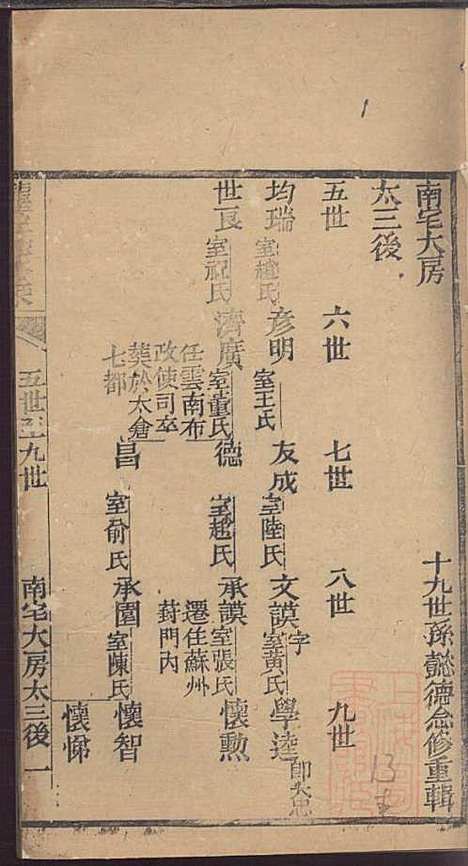 南宅大房
十九世孫懿德念修重輯
太三後
五世 六世 七世 八世 九世
均瑞 室趙氏 彥明 室王氏 友成 室陸氏 文謨 字 室黃氏 學逵 即大忠
世良 室祝氏 濟廣 室董氏 德 室趙氏 承謨 室張氏 懷勲
任雲南布
政使司卒
葬於太倉
七都
遷住蘇州
葑門内
昌 室俞氏 承圍 室陳氏 懷智
懷悌
五世至九世 南宅大房太三後 一
1
13